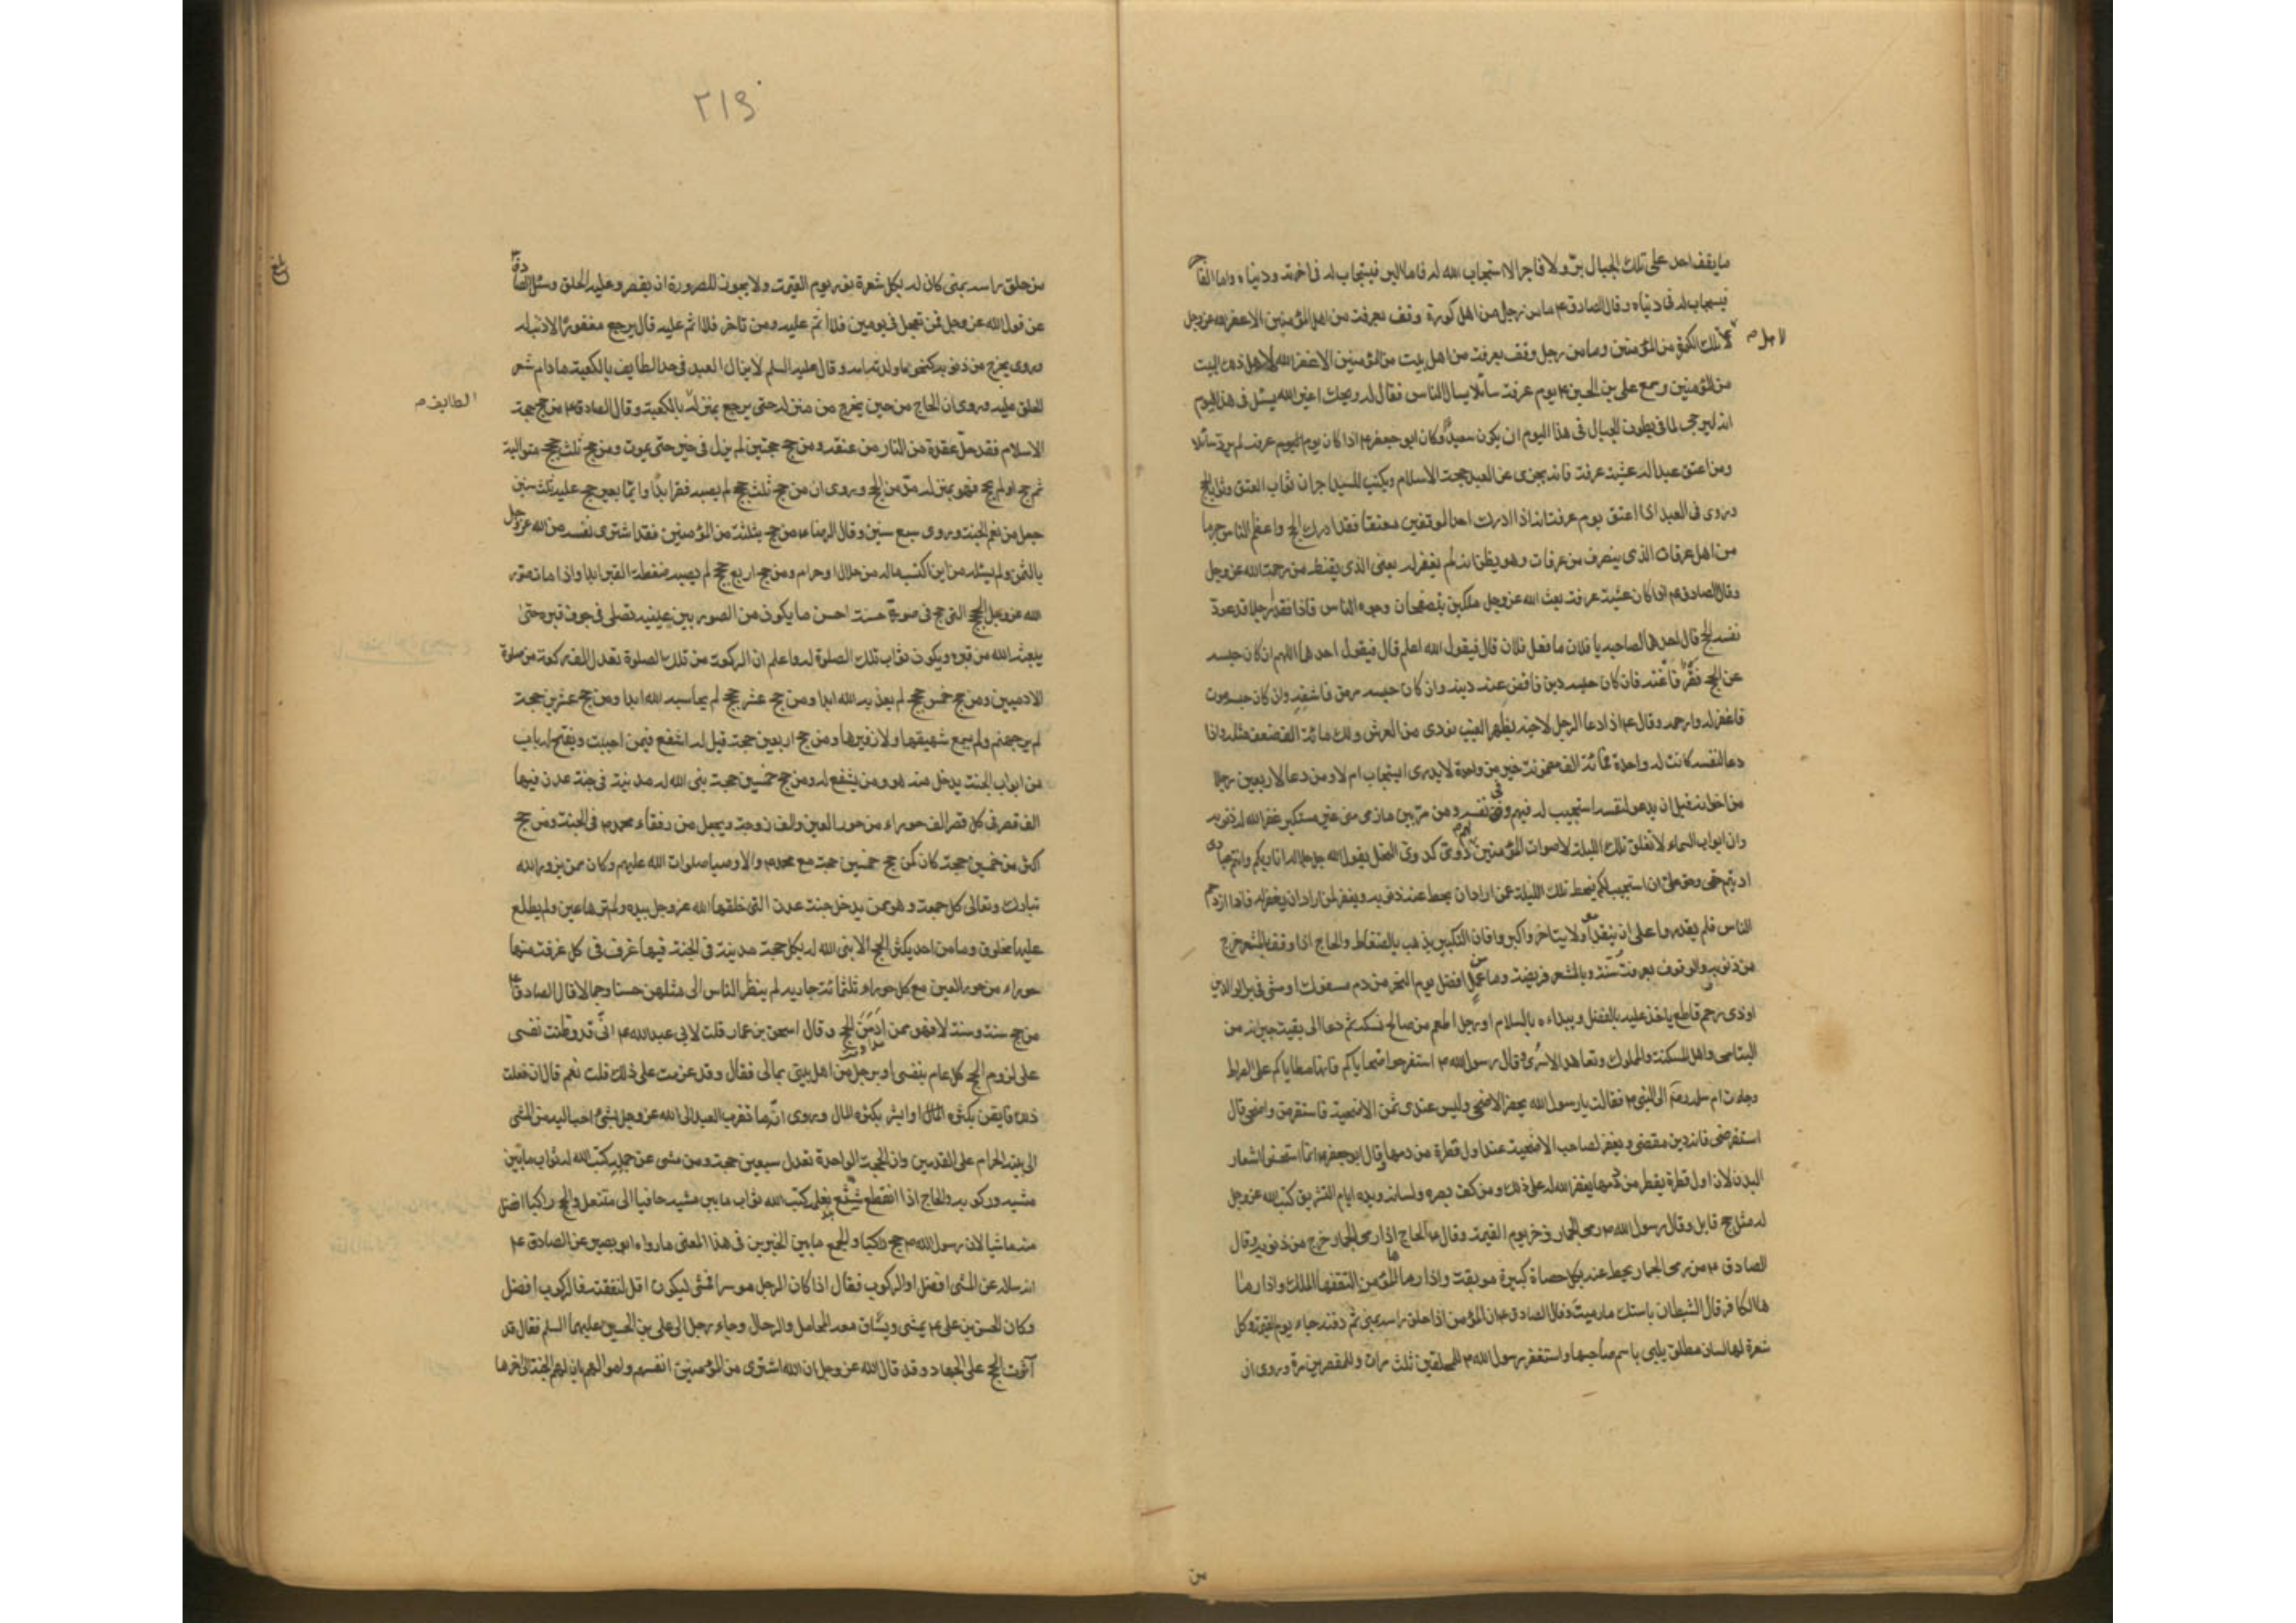 ما يقف احد على تلك الجبال برّ ولا فاجر الا استجاب الله له فاما البر فيستجاب له فى اخرته ودنياه واما الفاجر
فيستجاب له فى دنياه وقال الصادق ع ما من رجل من اهل كورة وقف بعرفة من اهل المؤمنين الا غفر الله عز وجل
لاهل تلك الكورة من المؤمنين وما من رجل وقف بعرفة من اهل بيت من المؤمنين الا غفر الله لاهل ذلك البيت
لاهل م
من المؤمنين وسمع على بن الحسين ع يوم عرفة سائلا يسال الناس فقال له ويحك اغير الله يسئل فى هذا اليوم
انه ليرجى لما فى بطون الحبال فى هذا اليوم ان يكون سعيدا وكان ابو جعفر ع اذا كان يوم عرفة لم يرد سائلا
ومن اعتق عبدا له عشية عرفة فانه يجزى عن العبد حجة الاسلام ويكتب للسيد اجران ثواب العتق وثواب الحج
وروى فى العبد اذا اعتق يوم عرفة انه اذا ادرك احد الموقفين معتقا فقد ادرك الحج واعظم الناس جرما
من اهل عرفات الذى ينصرف من عرفات وهو يظن انه لم يغفر له يعنى الذى يقنط من رحمة الله عز وجل
وقال الصادق ع اذا كان عشية عرفة بعث الله عز وجل ملكين يتصفحان وجوه الناس فاذا فقدا رجلا قد عود
نفسه الحج قال احدهما لصاحبه يا فلان ما فعل فلان قال فيقول الله اعلم قال فيقول احدهما اللهم ان كان حبسه
عن الحج فقر فاغنه فان كان حبسه دين فاقض عنه دينه وان كان حبسه مرض فاشفه وان كان حبسه موت
فاغفر له وارحمه وقال ع اذا دعا الرجل لاخيه بظهر الغيب نودى من العرش ولك مائة الف ضعف مثله واذا
دعا لنفسه كانت له واحدة فمائة الف مضمونة خير من واحدة لا يدرى ايستجاب ام لا ومن دعا لاربعين رجلا
من اخوانه قبل ان يدعو لنفسه استجيب له فيهم وفى نفسه ومن مر بين مازمى منى غير مستكبر غفر الله له ذنوبه
وان ابواب السماء لا تغلق تلك الليلة لاصوات المؤمنين لهم دوى كدوى النحل يقول الله جل جلاله انا ربكم وانتم عبادى
اديتم حقى وحق على ان استجيب لكم فيحط تلك الليلة عمن اراد ان يحط عنه ذنوبه ويغفر لمن اراد ان يغفر له فاذا ازدحم
الناس فلم يقدروا على ان يتقدموا ولا يتاخروا كبروا فان التكبير يذهب بالضغاط والحاج اذا وقف بالمشعر خرج
من ذنوبه والوقوف بعرفة سنة وبالمشعر فريضة وما من عمل افضل يوم النحر من دم مسفوك او مشى فى بر الوالدين
او ذى رحم قاطع ياخذ عليه بالفضل ويبداه بالسلام او رجل اطعم من صالح نسكه ثم دعا الى بقيته جيرانه من
اليتامى واهل المسكنة والمملوك وتعاهد الاسرى وقال رسول الله ص استفرهوا ضحاياكم فانها مطاياكم على الصراط
وجاءت ام سلمة رض الى النبى ص فقالت يا رسول الله يحضر الاضحى وليس عندى ثمن الاضحية فاستقرض واضحى قال
استقرضى فانه دين مقضى ويغفر لصاحب الاضحية عند اول قطرة من دمها وقال ابو جعفر ع انما استحسنوا اشعار
البدن لان اول قطرة يقطر من دمها يغفر الله له على ذلك ومن كف بصره ولسانه ويده ايام التشريق كتب الله عز وجل
له مثل حج قابل وقال رسول الله ص رمى الجمار ذخر يوم القيمة وقال ع الحاج اذا رمى الجمار خرج من ذنوبه وقال
الصادق ع من رمى الجمار يحط عنه بكل حصاة كبيرة موبقة واذا رماها المؤمن التقفها الملك واذا رما
ها الكافر قال الشيطان باستك ما رميت وقال الصادق ع ان المؤمن اذا حلق راسه بمنى ثم دفنه جاء يوم القيمة وكل
شعرة لها لسان مطلق يلبى باسم صاحبها واستغفر رسول الله ص للمحلقين ثلث مرات وللمقصرين مرة وروى ان
٢١٩
من حلق راسه بمنى كان له بكل شعرة نور يوم القيمة ولا يجوز للصرورة ان يقصر وعليه الحلق وسئل الصادق
عن قول الله عز وجل فمن تعجل فى يومين فلا اثم عليه ومن تاخر فلا اثم عليه قال يرجع مغفورا لا ذنب له
وروى يخرج من ذنوبه كنحو ما ولدته امه وقال عليه السلم لا يزال العبد فى حد الطايف بالكعبة ما دام شعر
الحلق عليه وروى ان الحاج من حين يخرج من منزله حتى يرجع بمنزلة بالكعبة وقال الصادق ع من حج حجة
الطايف م
الاسلام فقد حل عقدة من النار من عنقه ومن حج حجتين لم يزل فى خير حتى يموت ومن حج ثلث حجج متوالية
ثم حج او لم يحج فهو بمنزلة مدمن الحج وروى ان من حج ثلث حجج لم يصبه فقر ابدا وايما بعير حج عليه ثلث سنين
جعل من نعم الجنة وروى سبع سنين وقال الرضا ع من حج بثلثة من المؤمنين فقد اشترى نفسه من الله عز وجل
بالثمن ولم يسئله من اين اكتسب ماله من حلال او حرام ومن حج اربع حجج لم يصبه ضغطة القبر ابدا واذا مات صور
الله عز وجل الحج التى حج فى صورة حسنة احسن ما يكون من الصور بين عينيه تصلى فى جوف قبره حتى
يبعثه الله من قبره ويكون ثواب تلك الصلوة له واعلم ان الركعة من تلك الصلوة تعدل الف ركعة من صلوة
الادميين ومن حج خمس حجج لم يعذبه الله ابدا ومن حج عشر حجج لم يحاسبه الله ابدا ومن حج عشرين حجة
لم ير جهنم ولم يسمع شهيقها ولا زفيرها ومن حج اربعين حجة قيل له اشفع فيمن احببت ويفتح له باب
من ابواب الجنة يدخل منه هو ومن يشفع له ومن حج خمسين حجة بنى الله له مدينة فى جنة عدن فيها
الف قصر فى كل قصر الف حوراء من حور العين والف زوجة ويجعل من رفقاء محمد ص فى الجنة ومن حج
اكثر من خمسين حجة كان كمن حج خمسين حجة مع محمد ص والاوصيا صلوات الله عليهم وكان ممن يزوره الله
تبارك وتعالى كل جمعة وهو ممن يدخل جنة عدن التى خلقها الله عز وجل بيده ولم ترها عين ولم يطلع
عليها مخلوق وما من احد يكثر الحج الا بنى الله له بكل حجة مدينة فى الجنة فيها غرف فى كل غرفة منها
حوراء من حور العين مع كل حوراء ثلثمائة جارية لم ينظر الناس الى مثلهن حسنا وجمالا قال الصادق ع
من حج سنة وسنة لا فهو ممن ادمن الحج وقال اسحق بن عمار قلت لابى عبد الله ع انى قد وطنت نفسى
على لزوم الحج كل عام بنفسى او برجل من اهل بيتى بمالى فقال وقد عزمت على ذلك قلت نعم قال ان فعلت
ذلك فايقن بكثرة المال او ابشر بكثرة المال وروى انه ما تقرب العبد الى الله عز وجل بشئ احب اليه من المشى
الى بيته الحرام على القدمين وان الحجة الواحدة تعدل سبعين حجة ومن مشى عن جمله كتب الله له ثواب ما بين
مشيه وركوبه والحاج اذا انقطع شسع نعله كتب الله ثواب ما بين مشيه حافيا الى متنعل والحج راكبا افضل
منه ماشيا لان رسول الله ص حج راكبا والجمع ما بين الخبرين فى هذا المعنى ما رواه ابو بصير عن الصادق ع
انه ساله عن المشى افضل او الركوب فقال اذا كان الرجل موسرا فمشى ليكون اقل لنفقته فالركوب افضل
وكان الحسن بن على ع يمشى ويساق معه المحامل والرحال وجاء رجل الى على بن الحسين عليهما السلم فقال قد
آثرت الحج على الجهاد وقد قال الله عز وجل ان الله اشترى من المؤمنين انفسهم واموالهم بان لهم الجنة الى اخرها